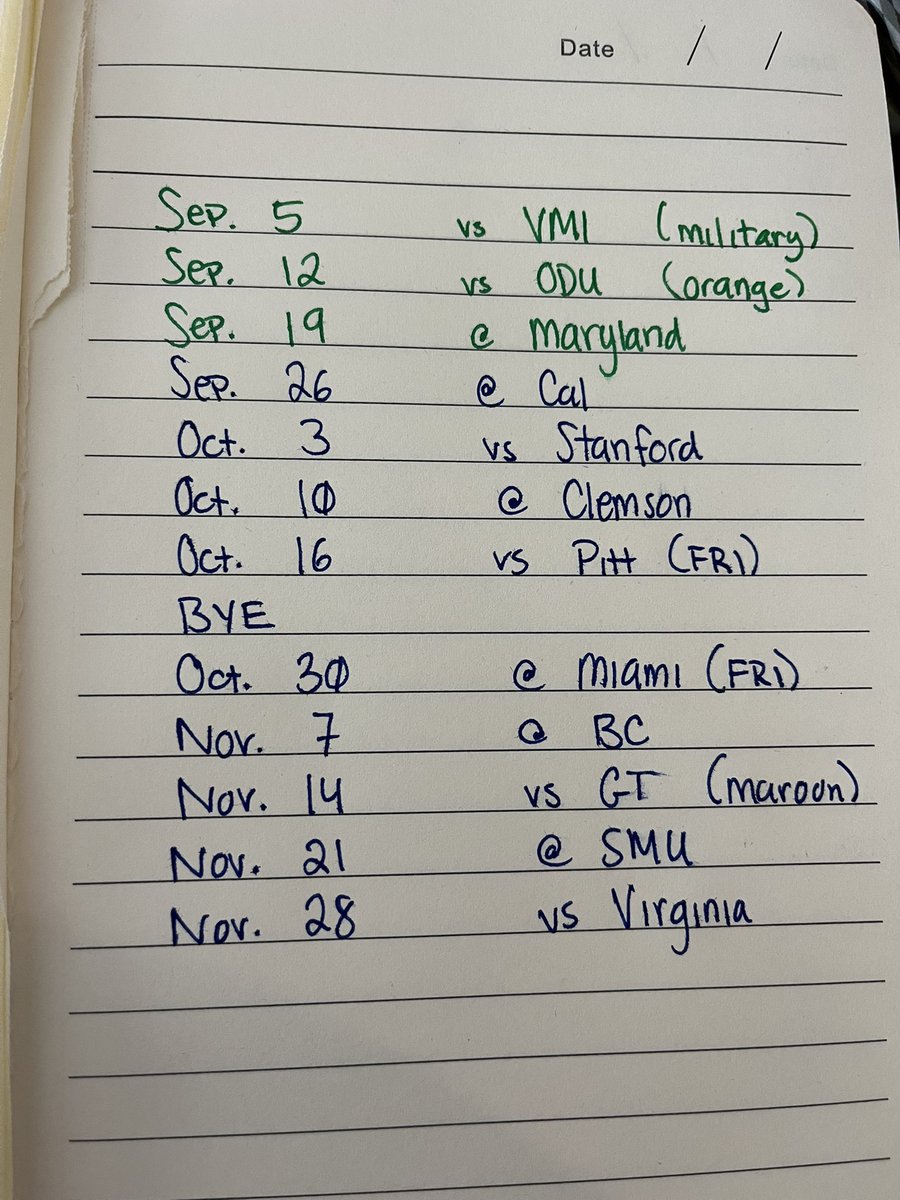 Date / /
Sep. 5 vs VMI (military)
Sep. 12 vs ODU (orange)
Sep. 19 @ Maryland
Sep. 26 @ Cal
Oct. 3 vs Stanford
Oct. 10 @ Clemson
Oct. 16 vs Pitt (FRI)
BYE
Oct. 30 @ Miami (FRI)
Nov. 7 @ BC
Nov. 14 vs GT (maroon)
Nov. 21 @ SMU
Nov. 28 vs Virginia